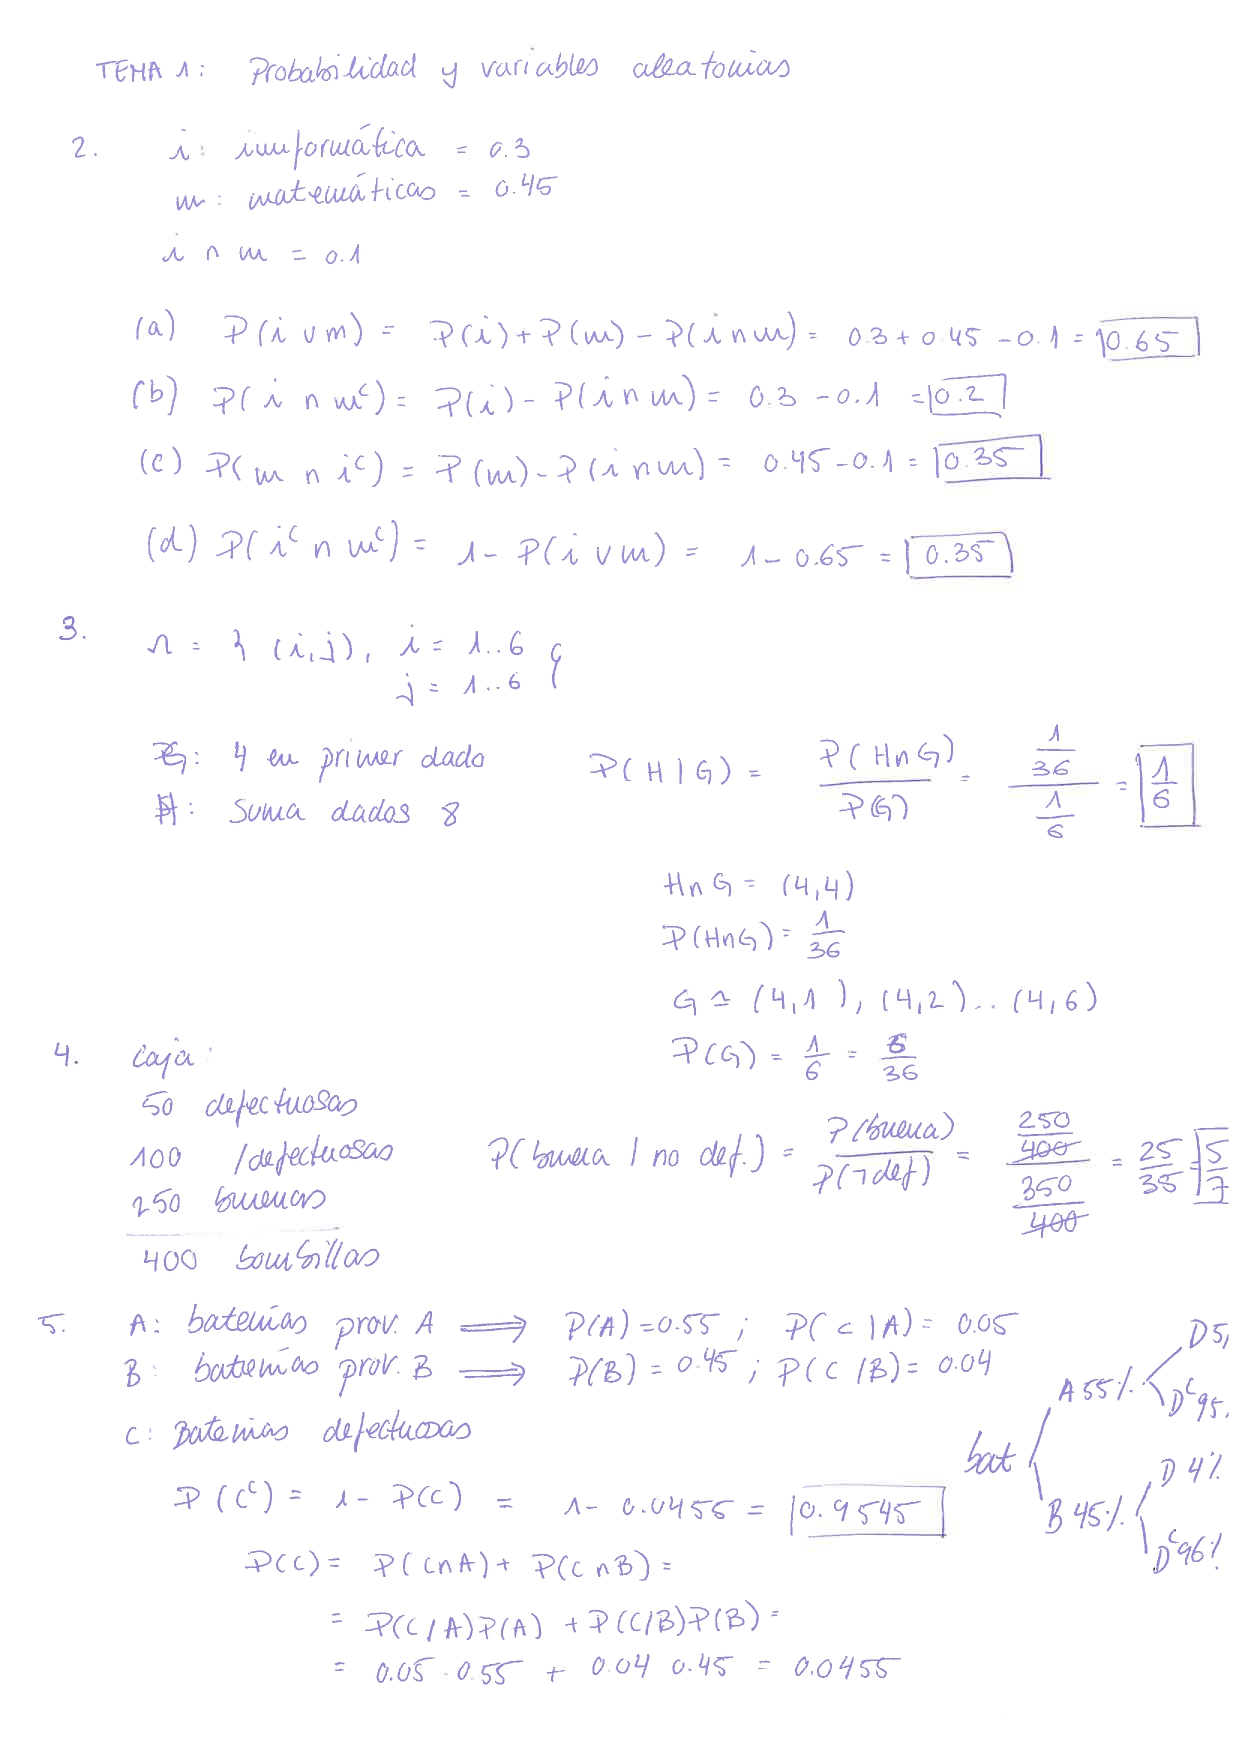 TEMA 1: Probabilidad y variables aleatorias
2. i: imformática = 0.3
m: matemáticas = 0.45
i ∩ m = 0.1
(a) P(i ∪ m) = P(i) + P(m) - P(i ∩ m) = 0.3 + 0.45 - 0.1 = 0.65
(b) P(i ∩ m^c) = P(i) - P(i ∩ m) = 0.3 - 0.1 = 0.2
(c) P(m ∩ i^c) = P(m) - P(i ∩ m) = 0.45 - 0.1 = 0.35
(d) P(i^c ∩ m^c) = 1 - P(i ∪ m) = 1 - 0.65 = 0.35
3. Ω = { (i,j), i = 1..6
j = 1..6 }
G: 4 en primer dado
H: Suma dados 8
P(H | G) = P(H∩G) / P(G) = (1/36) / (1/6) = 1/6
H∩G = (4,4)
P(H∩G) = 1/36
G = (4,1), (4,2)... (4,6)
P(G) = 1/6 = 6/36
4. Caja:
50 defectuosas
100 /defectuosas
250 buenas
400 bombillas
P(buena | no def.) = P(buena) / P(¬def) = (250/400) / (350/400) = 25/35 = 5/7
5. A: baterías prov. A ⟹ P(A) = 0.55 ; P(C|A) = 0.05
B: baterías prov. B ⟹ P(B) = 0.45 ; P(C/B) = 0.04
C: Baterias defectuosas
P(C^c) = 1 - P(C) = 1 - 0.0455 = 0.9545
P(C) = P(C∩A) + P(C∩B) =
= P(C/A)P(A) + P(C/B)P(B) =
= 0.05 · 0.55 + 0.04 0.45 = 0.0455
bat
A 55%
D 5,
D^c 95.
B 45%
D 4%
D^c 96%